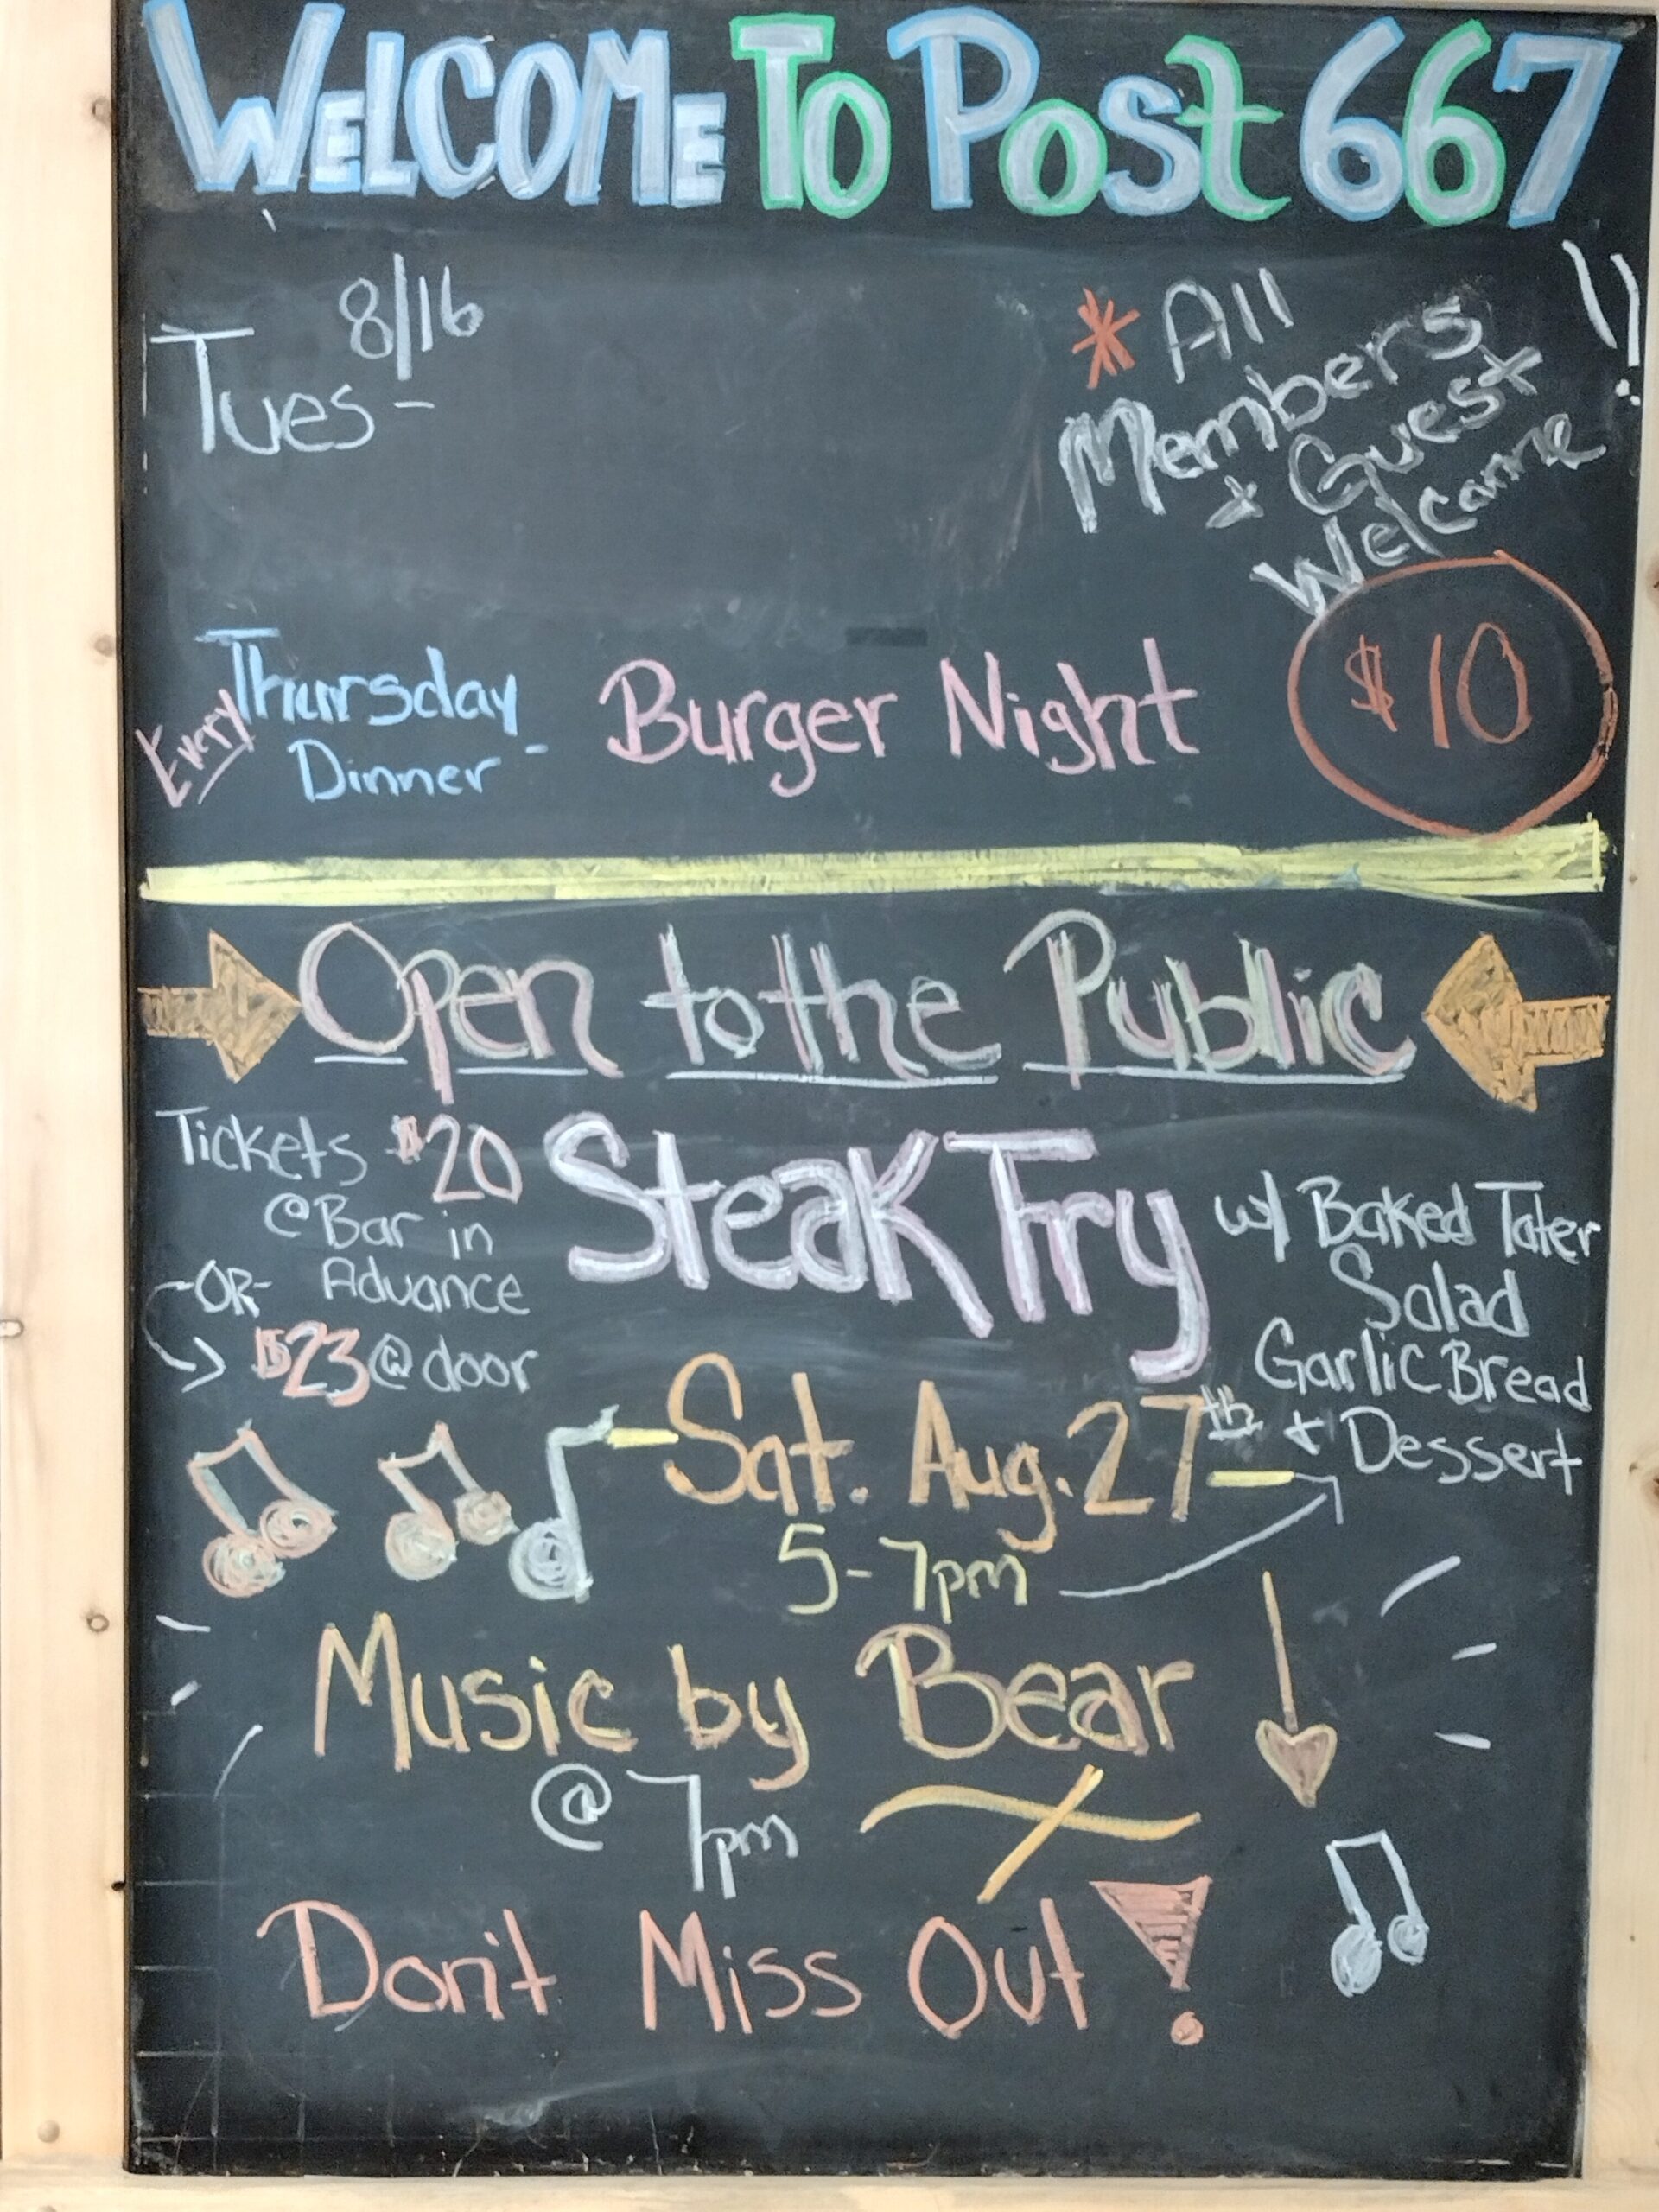 WELCOME TO POST 667
Tues - 8/16
* All
Members
+ Guest
Welcome !!
Every Thursday
Dinner - Burger Night $10
Open to the Public
Tickets $20
@ Bar in
Advance
-OR-
$23 @ door
Steak Fry
w/ Baked Tater
Salad
Garlic Bread
+ Dessert
Sat. Aug. 27th
5-7pm
Music by Bear
@ 7pm
Don't Miss Out!